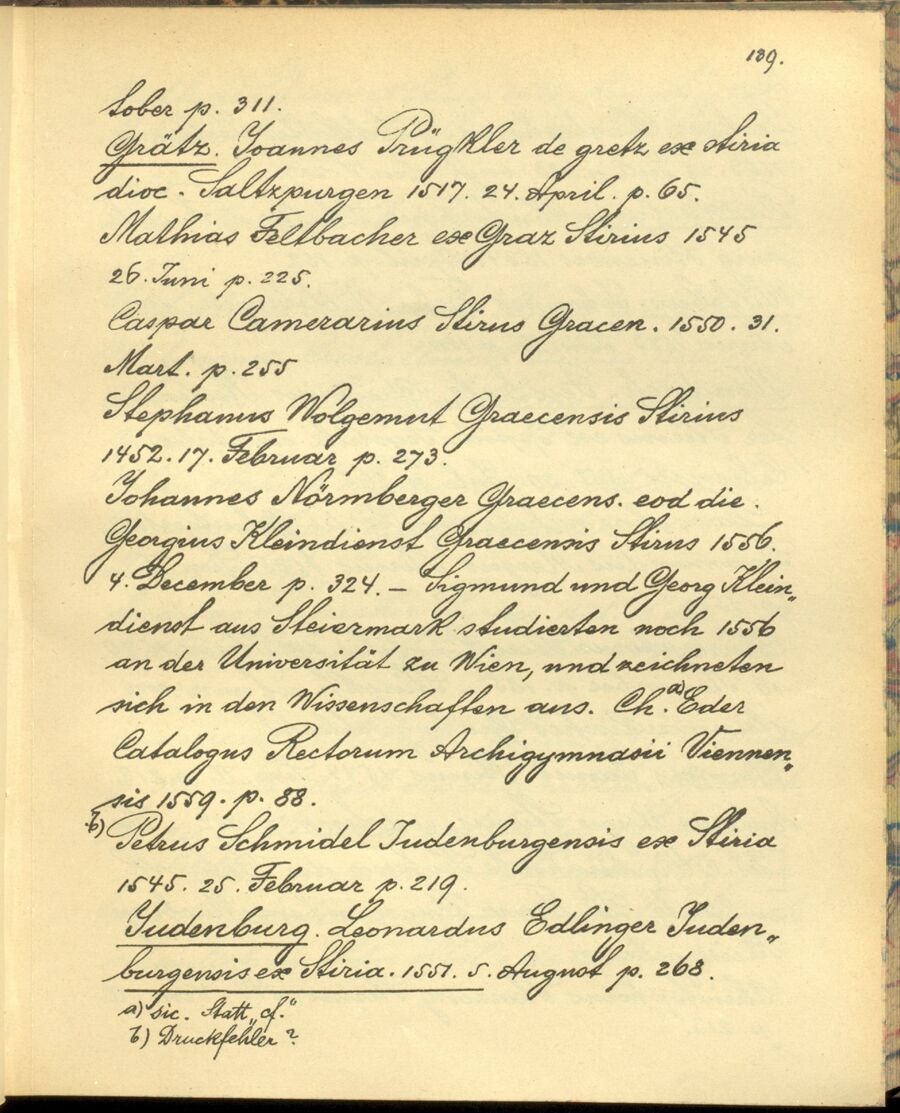 189.
tober p. 311.
Grätz. Joannes Prügkler de gretz ex stiria
dioc. Saltzpurgen 1517. 24. April. p. 65.
Mathias Feltbacher ex Graz Stirius 1545
26. Juni p. 225.
Caspar Camerarius Stirus Gracen. 1550. 31.
Mart. p. 255
Stephanus Wolgemut Graecensis Stirius
1452. 17. Februar p. 273.
Johannes Nörmberger Graecens. eod die.
Georgius Kleindienst Graecensis Stirus 1556.
4. December p. 324. – Sigmund und Georg Klein„
dienst aus Steiermark studierten noch 1556
an der Universität zu Wien, und zeichneten
sich in den Wissenschaften aus. Ch.a) Eder
Catalogus Rectorum Archigymnasii Viennen„
sis 1559. p. 88.
b) Petrus Schmidel Judenburgensis ex Stiria
1545. 25. Februar p. 219.
Judenburg. Leonardus Edlinger Juden„
burgensis ex Stiria. 1551. 5. August p. 268.
a) sic. Statt „cf."
b) Druckfehler?